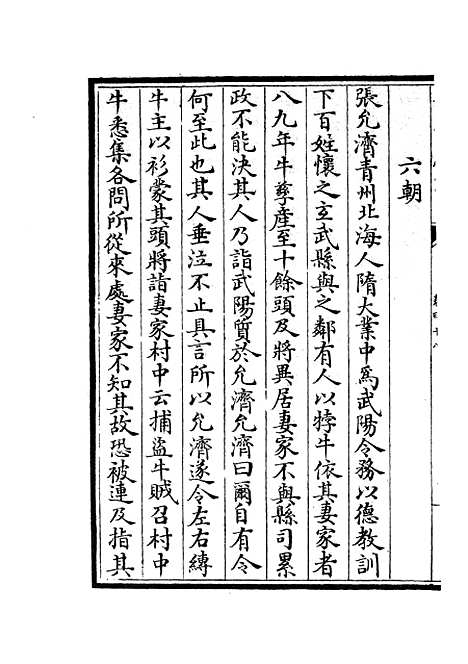 六朝
張允濟青州北海人隋大業中為武陽令務以德教訓
下百姓懷之玄武縣與之鄰有人以牸牛依其妻家者
八九年牛孳產至十餘頭及將異居妻家不與縣司累
政不能決其人乃詣武陽質於允濟允濟曰爾自有令
何至此也其人垂泣不止具言所以允濟遂令左右縛
牛主以衫蒙其頭將詣妻家村中云捕盜牛賊召村中
牛悉集各問所從來處妻家不知其故恐被連及指其